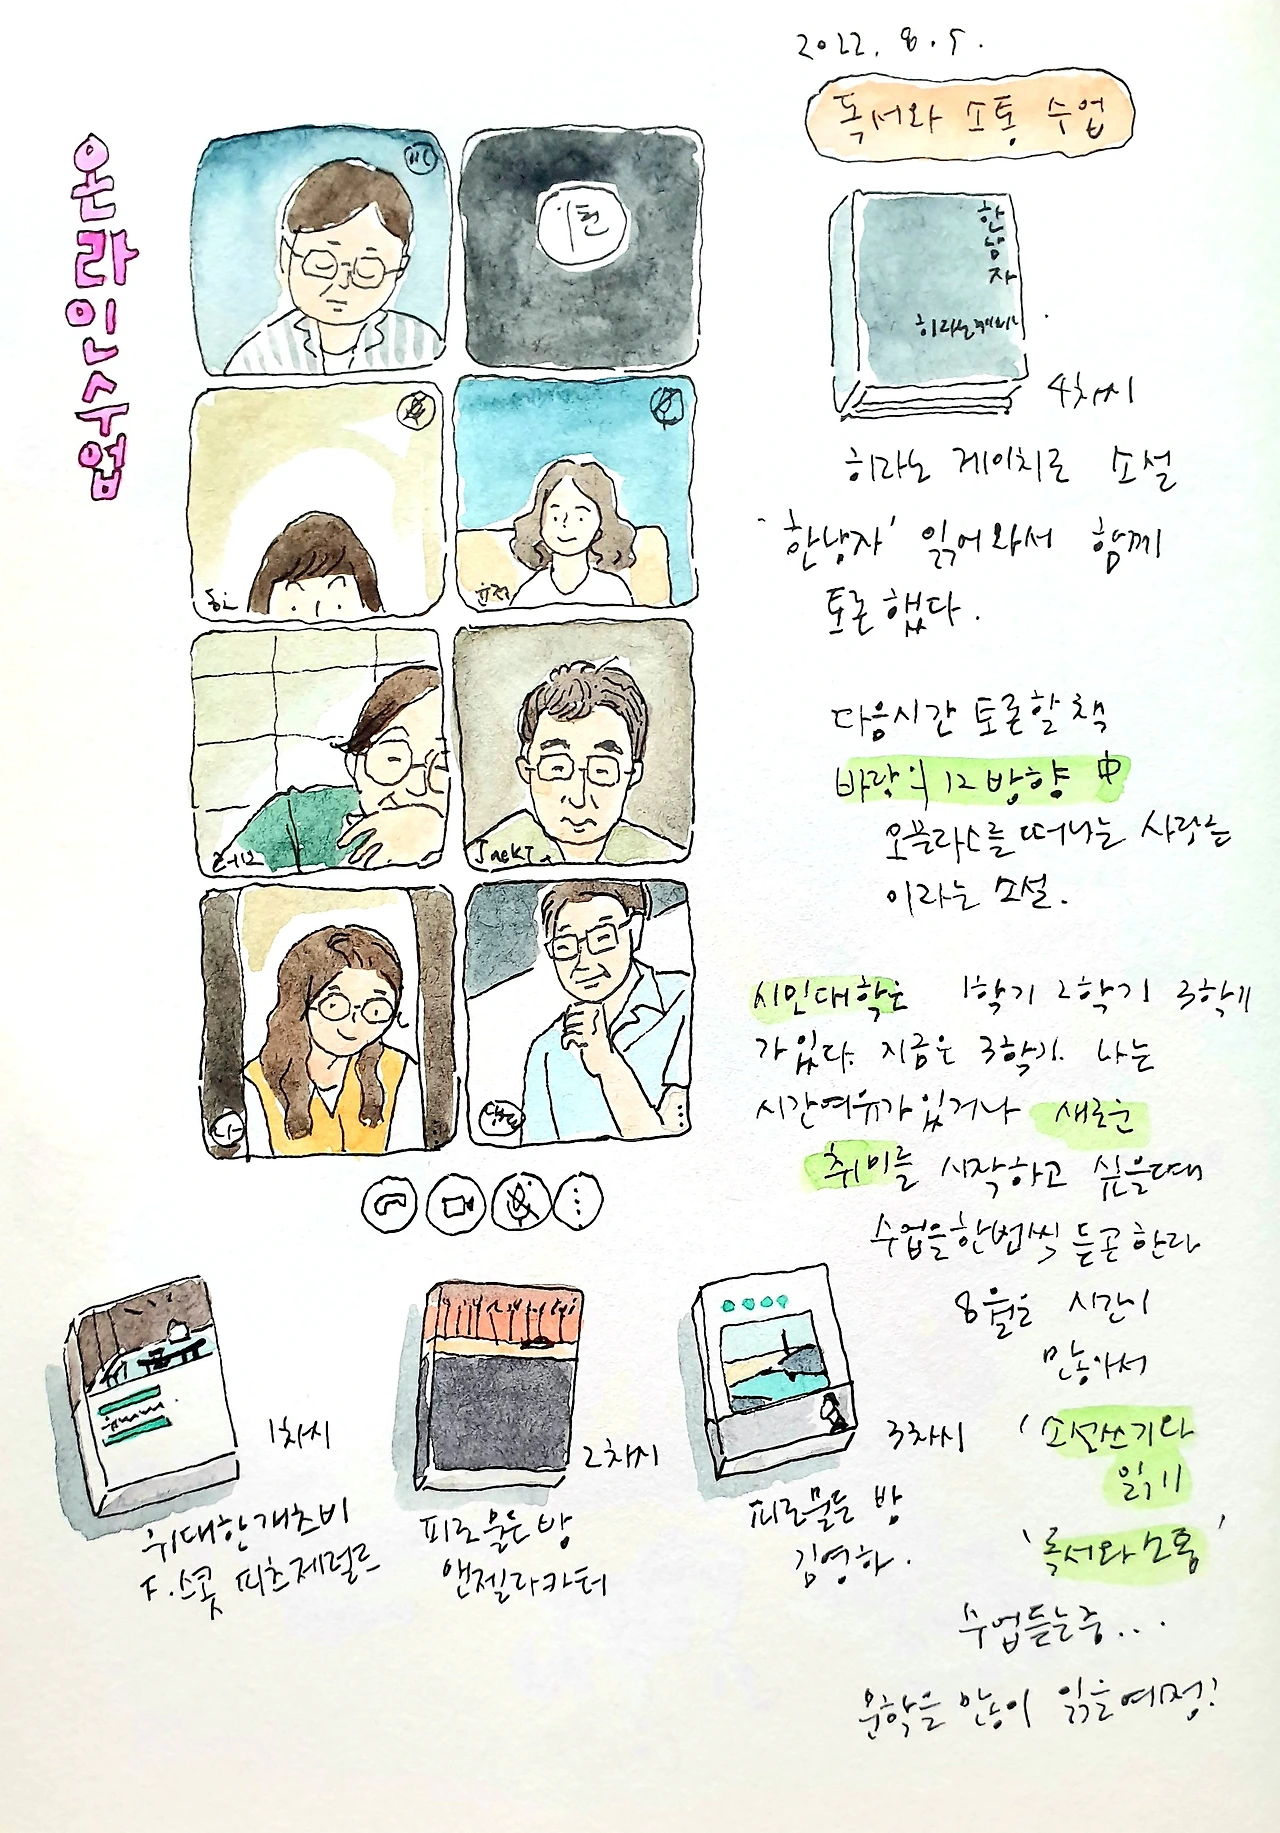 2022. 8. 5.
독서와 소통 수업
온라인수업
한
남
자
4차시
히라노 게이치로 소설
'한남자' 읽어와서 함께
토론했다.
다음시간 토론할 책
바람의 12 방향 中
오믈라스를 떠나는 사람들
이라는 소설.
시민대학은 1학기 2학기 3학기
가 있다. 지금은 3학기. 나는
시간여유가 있거나 새로운
취미를 시작하고 싶을때
수업을 한번씩 듣곤한다
8월은 시간이
많아서
'소설쓰기와
읽기
'독서와 소통'
수업듣는중...
문학을 많이 읽을예정!
1차시
위대한개츠비
F.스콧 피츠제럴드
2차시
피로 물든 방
앤젤라카터
3차시
피로물든 방
김영하.